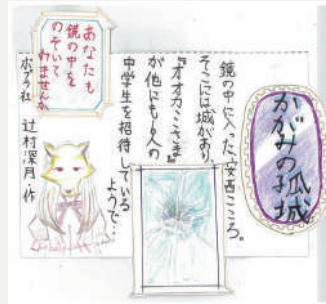 かがみの孤城
鏡の中に入った、安西こころ。
そこには城があり、
『オオカミさま』
が他にも6人の
中学生を招待している
ようで…
あなたも
鏡の中を
のぞいて
みませんか
ポプラ社
辻村深月・作